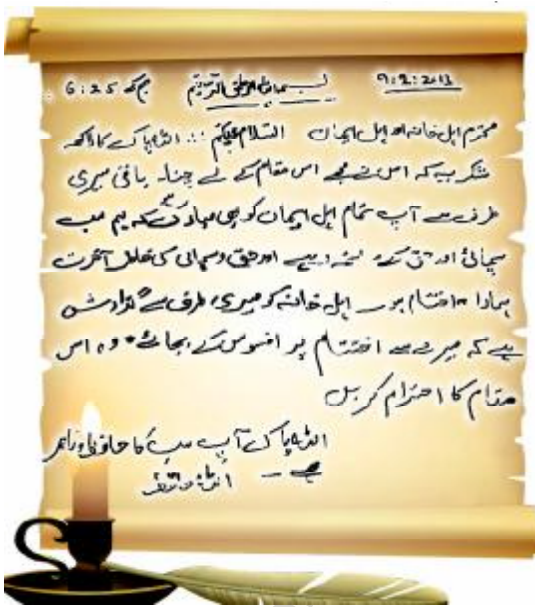 9:2:2013 بسم اللہ الرحمٰن الرحیم صبح 6:25
محترم اہل خانہ اور اہل ایمان السلام علیکم ... اللہ پاک کا لاکھ
شکر ہے کہ اس نے مجھے اس مقام کے لے چنا۔ باقی میری
طرف سے آپ تمام اہل ایمان کو بھی مبارک کہ ہم سب
سچائی اور حق کے ساتھ رہے اور حق و سچائی کی خاطر آخرت
ہمارا اختتام ہو۔ اہل خانہ کو میری طرف سے گذارش
ہے کہ میرے اس اختتام پر افسوس کے بجائے وہ اس
مقام کا احترام کریں
اللہ پاک آپ سب کا حافظ و ناصر
ہے